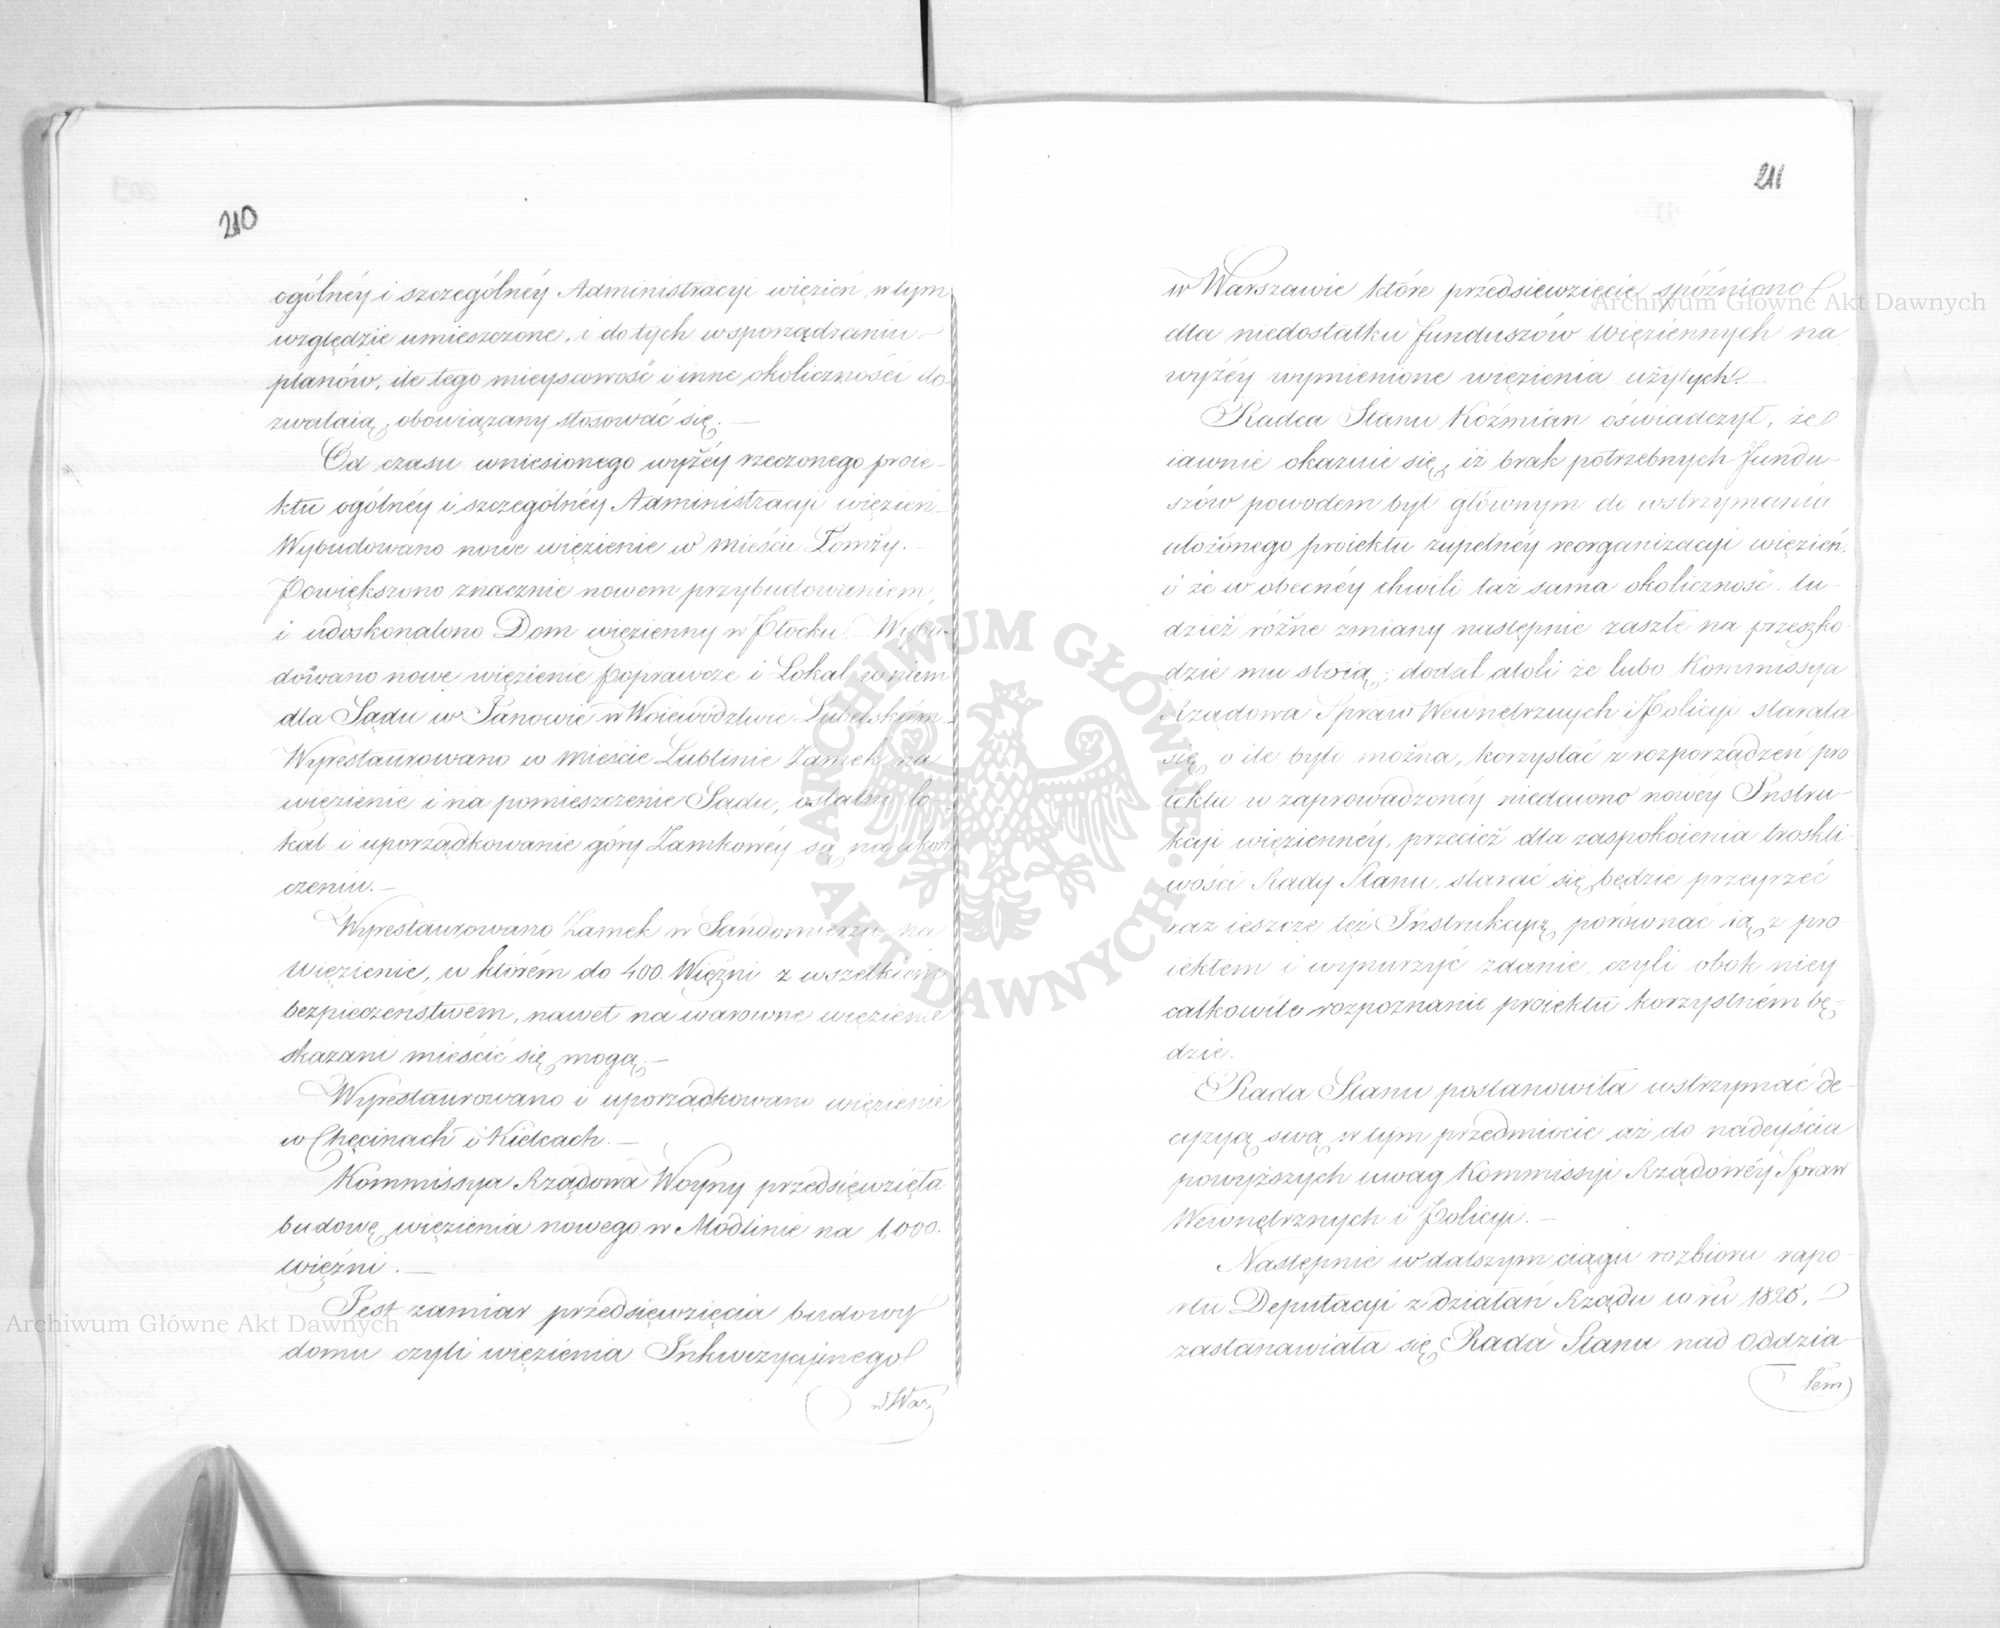 210
ogólnéy i szczególnéy Administracyi więzień, w tym
względzie umieszczone, i do tych w sporządzaniu
planów, ile tego mieyscowość i inne okoliczności do-
zwalaią, obowiązany stosować się. —
Od czasu wniesionego wyżéy rzeczonego proie-
ktu ogólnéy i szczególnéy Administracyi więzień.
Wybudowano nowe więzienie w mieście Łomży. —
Powiększono znacznie nowem przybudowaniem,
i udoskonalono Dom więzienny w Płocku. Wybu-
dowano nowe więzienie poprawcze i Lokal w niem
dla Sądu w Janowie w Woiewództwie Lubelskim. —
Wyrestaurowano w mieście Lublinie Zamek na
więzienie i na pomieszczenie Sądu, ostatni lo-
kal i uporządkowanie góry Zamkowéy są na ukoń
czeniu. —
Wyrestaurowano Zamek w Sandomierzu na
więzienie, w którém do 400. Więźni z wszelkiem
bezpieczeństwem, nawet na warowne więzienie
skazani mieścić się mogą. —
Wyrestaurowano i uporządkowano więzienie
w Chęcinach i Kielcach. —
Kommissya Rządowa Woyny przedsięwzięła
budowę więzienia nowego w Modlinie na 1,000.
więźni. —
Jest zamiar przedsięwzięcia budowy
domu czyli więzienia Inkwizycyinego
w War.
211
w Warszawie które przedsiewzięcie spóźniono
dla niedostatku funduszów Więziennych na
wyżéy wymienione więzienia użytych. —
Radca Stanu Koźmian oświadczył, że
iawnie okazuie się, iż brak potrzebnych fundu-
szów powodem był głównym do wstrzymania
ułożonego proiektu zupełnéy reorganizacyi więzień,
i że w obecnéy chwili taż sama okoliczność tu-
dzież różne zmiany następnie zaszłe na przeszko-
dzie mu stoią; dodał atoli że lubo Kommissya
Rządowa Spraw Wewnętrznych i Policyi starała
się o ile było można, korzystać z rozporządzeń pro
iektu w zaprowadzonéy niedawno nowéy Instru-
kcyi więziennéy, przecież dla zaspokoienia troskli-
wości Rady Stanu, starać się będzie przeyrzéć
raz ieszcze też Instrukcyą porównać ią z pro-
iektem i wynurzyć zdanie, czyli obok niey
całkowite rozpoznanie proiektu korzystném bę-
dzie.
Rada Stanu postanowiła wstrzymać de-
cyzyą swą w tym przedmiocie aż do nadeyścia
powyższych uwag Kommissyi Rządowéy Spraw
Wewnętrznych i Policyi. —
Następnie w dalszym ciągu rozbioru rapo-
rtu Deputacyi z działań Rządu w ru 1825,
zastanawiała się Rada Stanu nad Oddzia-
łem
Archiwum Główne Akt Dawnych
Archiwum Główne Akt Dawnych
ARCHIWUM GŁÓWNE AKT DAWNYCH